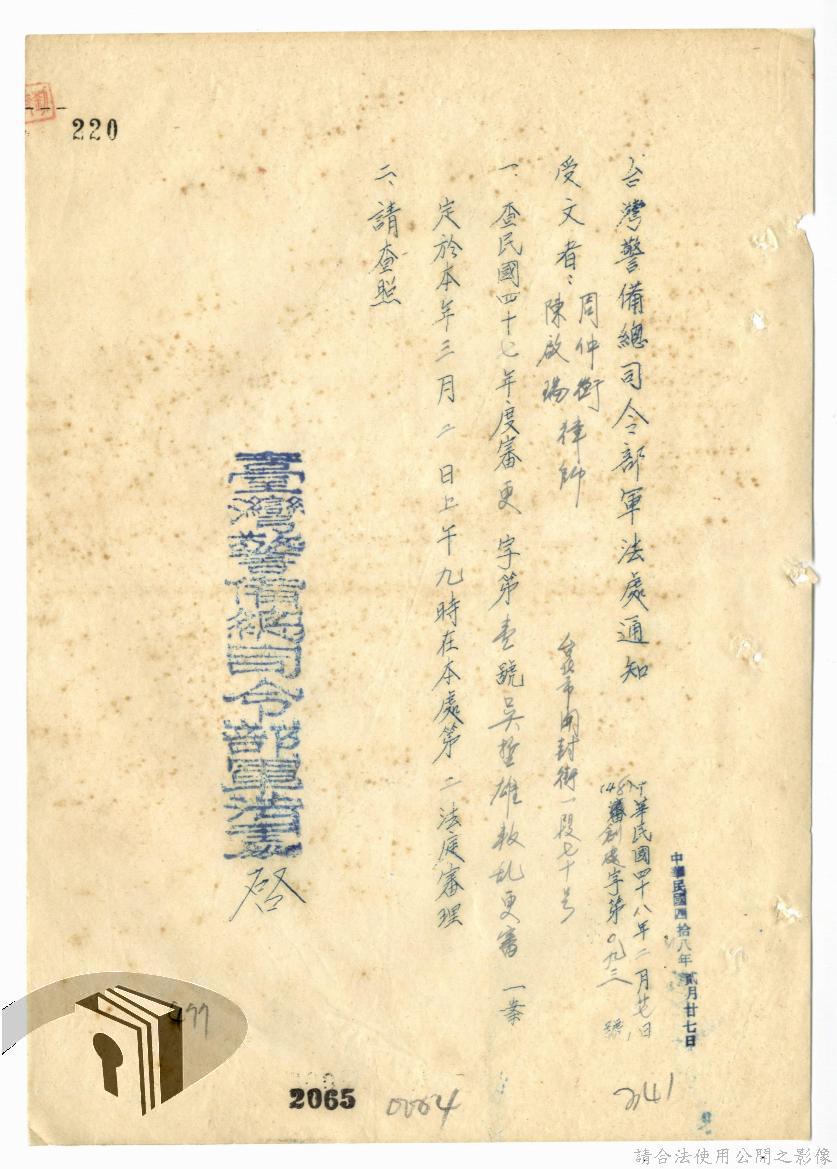 220
台灣警備總司令部軍法處通知
中華民國四拾八年貳月廿七日
中華民國四十八年二月廿七日
受文者：周仲衡
陳啟瑞律師
台北市開封街一段七十号
一、查民國四十七年度審更字第壹號吳 雄叛乱更審一案
定於本年三月二日上午九時在本處第二法庭審理
二、請查照
臺灣警備總司令部軍法處
啓
2065
0064
2141
請合法使用公開之影像